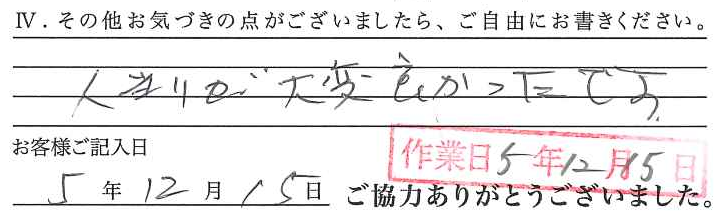 Ⅳ．その他お気づきの点がございましたら、ご自由にお書きください。
人当りが大変良かったです
お客様ご記入日
作業日5年12月15日
5年12月15日 ご協力ありがとうございました。